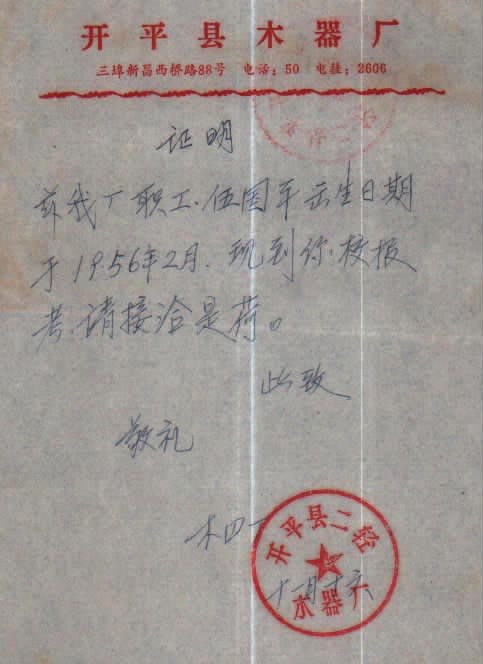 开平县木器厂
三埠新昌西桥路88号 电话:50 电挂:2606
证明
兹我厂职工.伍国平出生日期
于1956年2月.现到你校报
考.请接洽是荷。
此致
敬礼
木四厂
开平县二轻
木器厂
十一月十六